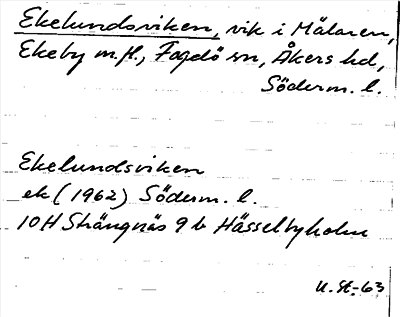 Ekelundsviken, vik i Mälaren,
Ekeby m.fl., Fogdö sn, Åkers hd,
Söderm. l.
Ekelundsviken
ek (1962) Söderm. l.
10H Strängnäs 9 b Hässelbyholm
U. St-63